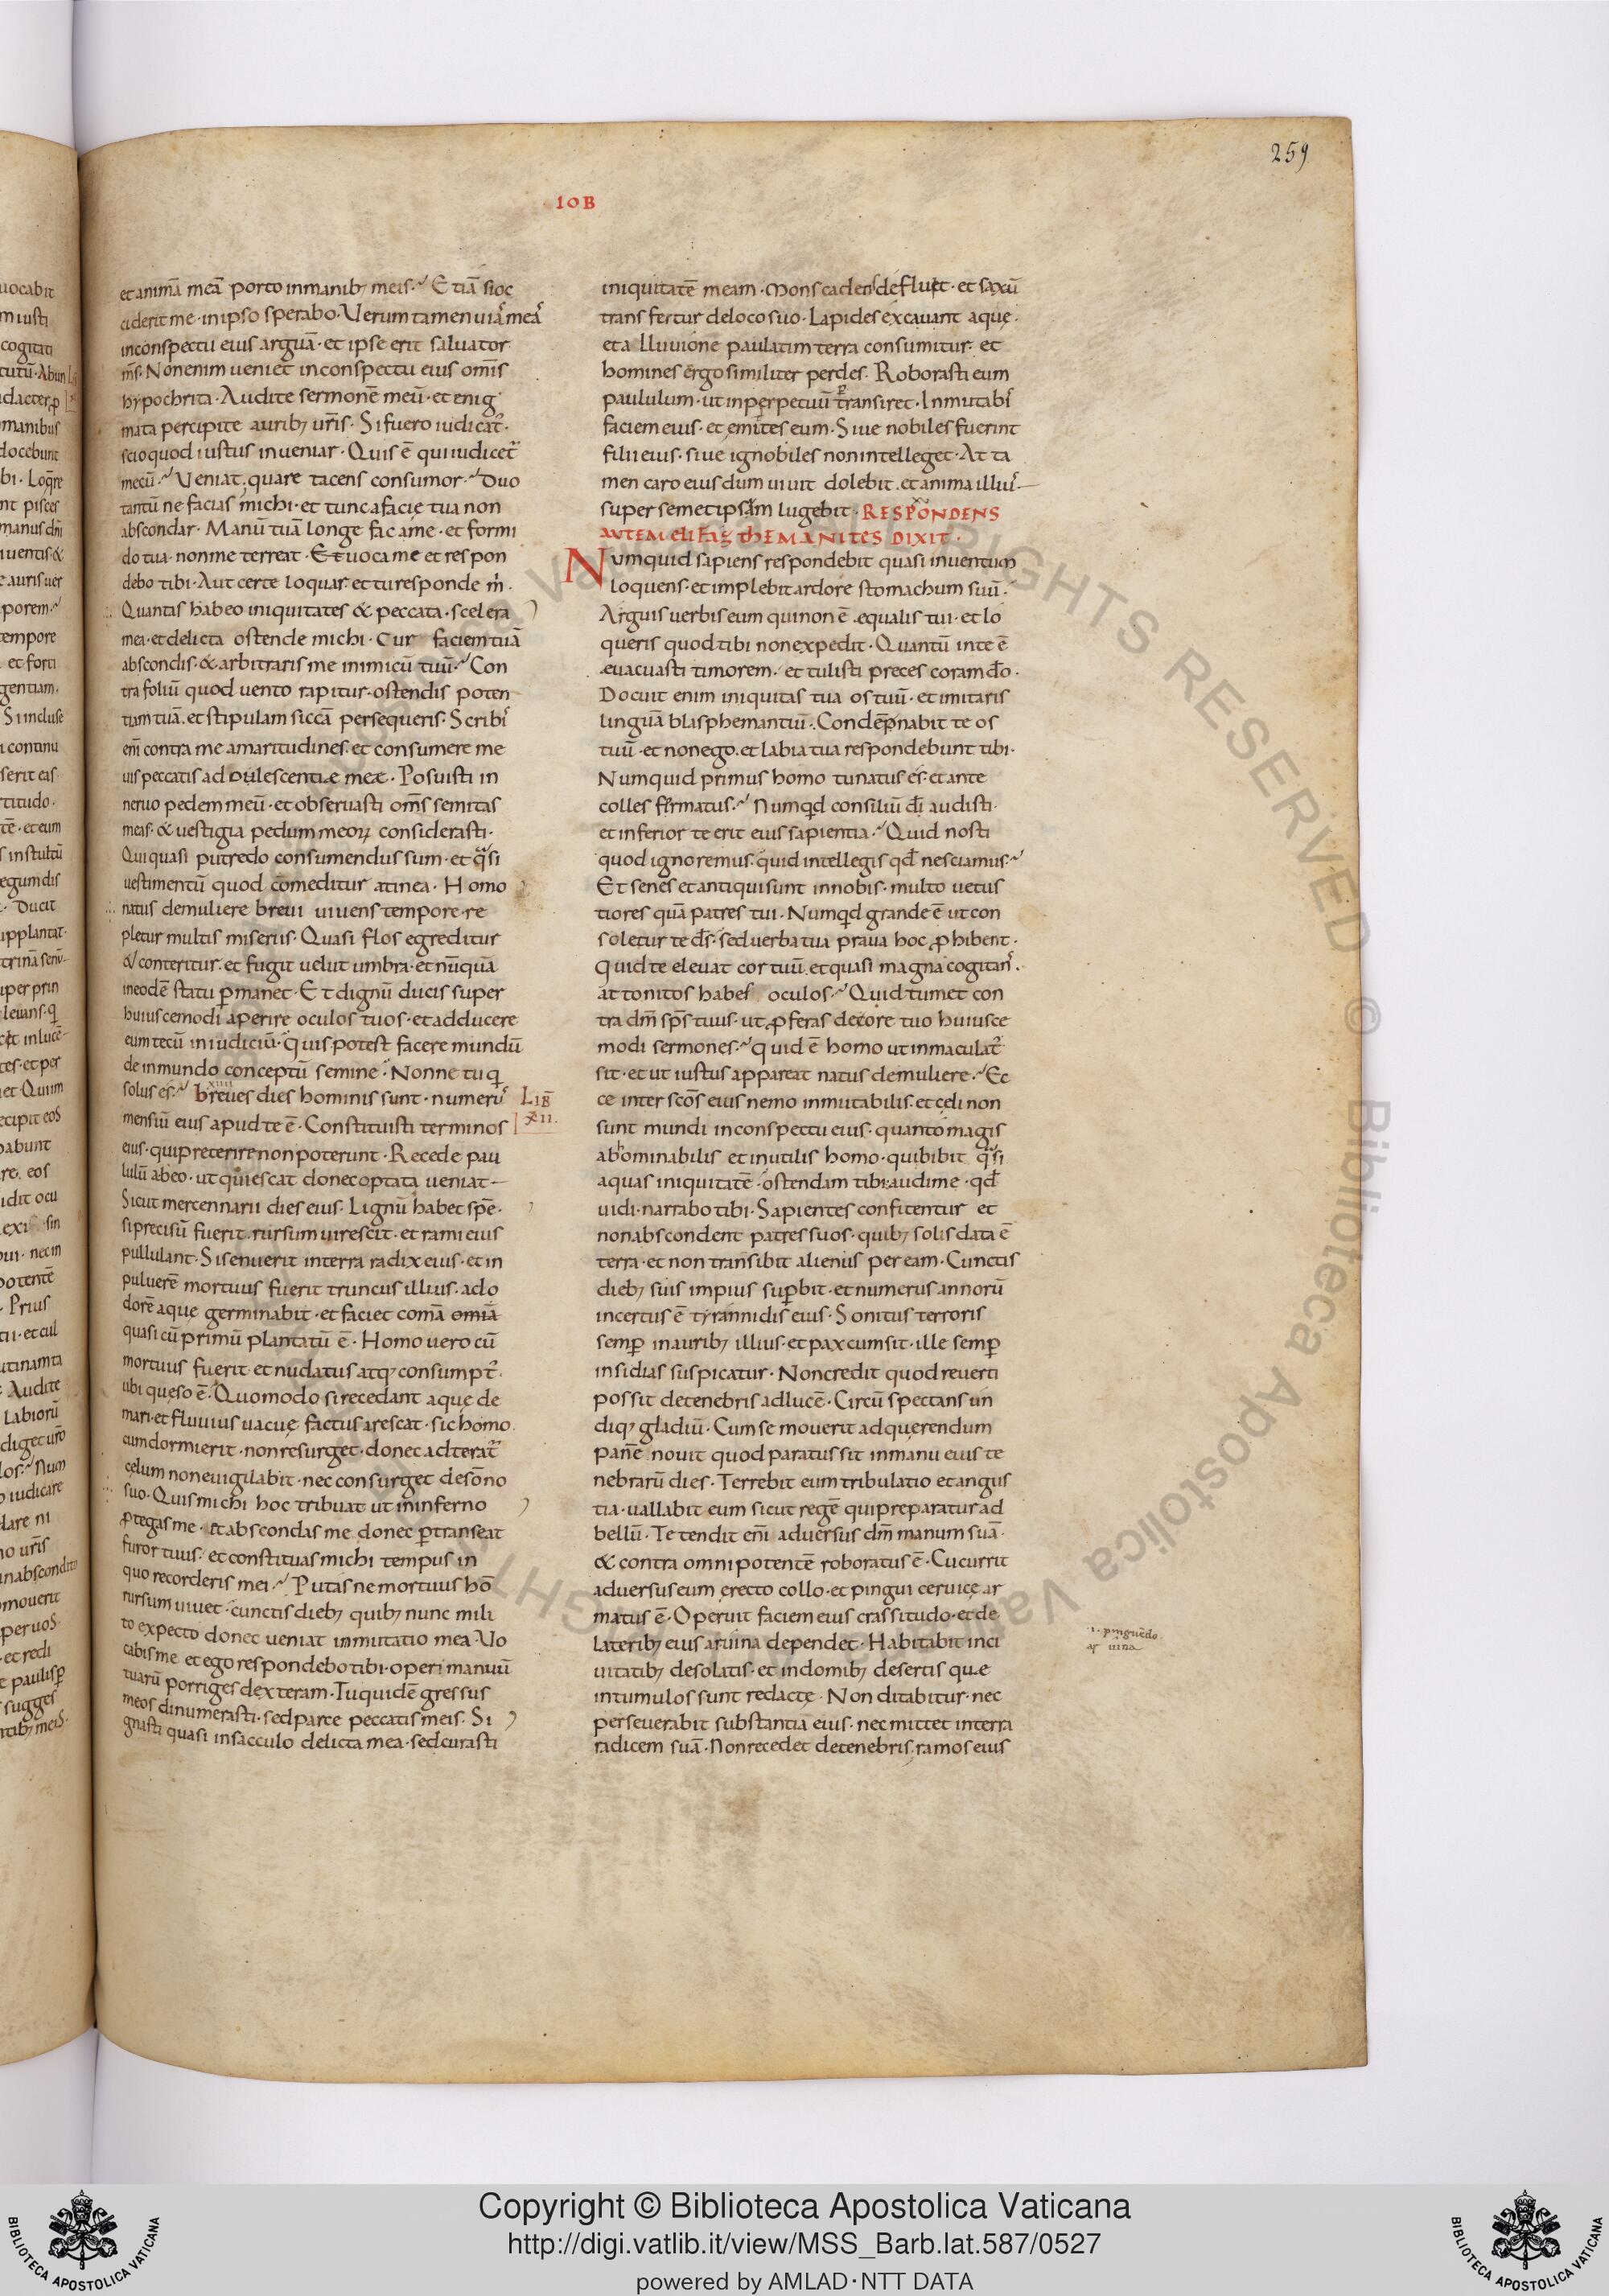 259
IOB
et animā meā porto in manibꝫ meis. Etiā si oc
ciderit me in ipso sperabo. Verum tamen uiā meā
in conspectu eius arguā. et ipse erit saluator
m̄s. Non enim ueniet in conspectu eius om̄is
hypochrita. Audite sermonē meū. et enig
mata percipite auribꝫ ur̄is. Si fuero iudicat᷑.
scio quod iustus inueniar. Quis ē qui iudicet᷑
mecū. Veniat, quare tacens consumor. Duo
tantū ne facias michi. et tunc a facie tua non
abscondar. Manū tuā longe fac a me. et formi
do tua. non me terreat. Et uoca me et respon
debo tibi. Aut certe loquar. et tu responde m̄.
Quantas habeo iniquitates & peccata. scelera
mea. et delicta ostende michi. Cur faciem tuā
abscondis. & arbitraris me inimicū tuū. Con
tra foliū quod uento rapitur. ostendis poten
tiam tuā. et stipulam siccā persequeris. Scribis
eni contra me amaritudines. et consumere me
uis peccatis adolescentiæ meæ. Posuisti in
neruo pedem meū. et obseruasti om̄s semitas
meas. & uestigia pedum meoꝝ considerasti.
Qui quasi putredo consumendus sum. et qᵃsi
uestimentū quod comeditur a tinea. Homo
natus de muliere breui uiuens tempore. re
pletur multis miseriis. Quasi flos egreditur
& conteritur. et fugit uelut umbra. et nūquā
in eodē statu ꝑmanet. Et dignū ducis super
huiuscemodi aperire oculos tuos. et adducere
eum tecū in iudiciū. Quis potest facere mundū
de inmundo conceptū semine. Nonne tu qͥ
solus es. Breues dies hominis sunt. numerus
LIB̄
mensiū eius apud te ē. Constituisti terminos
XII.
eius. qui preterire non poterunt. Recede pau
lulū ab eo. ut quiescat donec optata ueniat
Sicut mercennarii dies eius. Lignū habet spē.
si precisū fuerit. rursum uirescit. et rami eius
pullulant. Si senuerit in terra radix eius. et in
puluerē mortuus fuerit truncus illius. ad o
dorē aque germinabit. et faciet comā omiā
quasi cū primū plantatū ē. Homo uero cū
mortuus fuerit. et nudatus atqꝫ consumpt᷑.
ubi queso ē. Quomodo si recedant aque de
mari. et fluuius uacue factus arescat. sic homo
cum dormierit. non resurget. donec adterat᷑
celum non euigilabit. nec consurget de sōno
suo. Quis michi hoc tribuat ut in inferno
ꝓtegas me. et abscondas me donec ꝑtranseat
furor tuus. et constituas michi tempus in
quo recorderis mei. Putasne mortuus hō
rursum uiuet. cunctis diebꝫ quibꝫ nunc mili
to expecto donec ueniat inmutatio mea. Vo
cabis me et ego respondebo tibi. operi manuū
tuarū porriges dexteram. Tu quidē gressus
meos dinumerasti. sed parce peccatis meis. Si
gnasti quasi in sacculo delicta mea. sed curasti
iniquitatē meam. Mons cadens defluet. et saxū
transfertur de loco suo. Lapides excauant aquę.
et alluuione paulatim terra consumitur. et
homines ergo similiter perdes. Roborasti eum
paululum. ut in perpetuū transiret. Inmutabis
faciem eius. et emittes eum. Siue nobiles fuerint
filii eius. siue ignobiles non intelleget. At ta
men caro eius dum uiuit dolebit. et anima illius
super semetipsam lugebit. RESPONDENS
AUTEM ELIFAZ THEMANITES DIXIT.
Numquid sapiens respondebit quasi in uentum
loquens. et implebit ardore stomachum suū.
Arguis uerbis eum qui non ē ęqualis tui. et lo
queris quod tibi non expedit. Quantū in te ē
euacuasti timorem. et tulisti preces coram dō.
Docuit enim iniquitas tua os tuū. et imitaris
linguā blasphemantiū. Condempnabit te os
tuū. et non ego. et labia tua respondebunt tibi.
Numquid primus homo tu natus es. et ante
colles formatus. Numqͥd consiliū dī audisti.
et inferior te erit eius sapientia. Quid nosti
quod ignoremus. quid intellegis qd̄ nesciamus.
Et senes et antiqui sunt in nobis. multo uetus
tiores quā patres tui. Numqͥd grande ē ut con
soletur te ds̄. sed uerba tua praua hoc ꝓhibent.
Quid te eleuat cor tuū. et quasi magna cogitans.
attonitos habes oculos. Quid tumet con
tra dm̄ sps̄ tuus. ut ꝓferas de ore tuo huiusce
modi sermones. Quid ē homo ut inmaculat᷑
sit. et ut iustus appareat natus de muliere. Ec
ce inter scōs eius nemo inmutabilis. et cęli non
sunt mundi in conspectu eius. quanto magis
abhominabilis et inutilis homo. qui bibit qᵃsi
aquas iniquitatē. ostendam tibi. audi me. qd̄
uidi. narrabo tibi. Sapientes confitentur et
non abscondent patres suos. quibꝫ solis data ē
terra. et non transibit alienus per eam. Cunctis
diebꝫ suis impius suꝑbit. et numerus annorū
incertus ē tyrannidis eius. Sonitus terroris
semꝑ in auribꝫ illius. et pax cum sit. ille semꝑ
insidias suspicatur. Non credit quod reuerti
possit de tenebris ad lucē. Circū spectans un
diqꝫ gladiū. Cum se mouerit ad querendum
panē nouit quod paratus sit in manu eius te
nebrarū dies. Terrebit eum tribulatio et angus
tia. uallabit eum sicut regē qui preparatur ad
bellū. Tetendit enī aduersus dm̄ manum suā.
& contra omnipotentē roboratus ē. Cucurrit
aduersus eum erecto collo. et pingui ceruice ar
matus ē. Operuit faciem eius crassitudo. et de
lateribꝫ eius aruina dependet. Habitabit in ci
uitatibꝫ desolatis. et in domibꝫ desertis quę
in tumulos sunt redactę. Non ditabitur. nec
perseuerabit substantia eius. nec mittet in terra
radicem suā. Non recedet de tenebris. ramos eius
.i. pinguedo.
ar uina
Copyright © Biblioteca Apostolica Vaticana
http://digi.vatlib.it/view/MSS_Barb.lat.587/0527
powered by AMLAD·NTT DATA